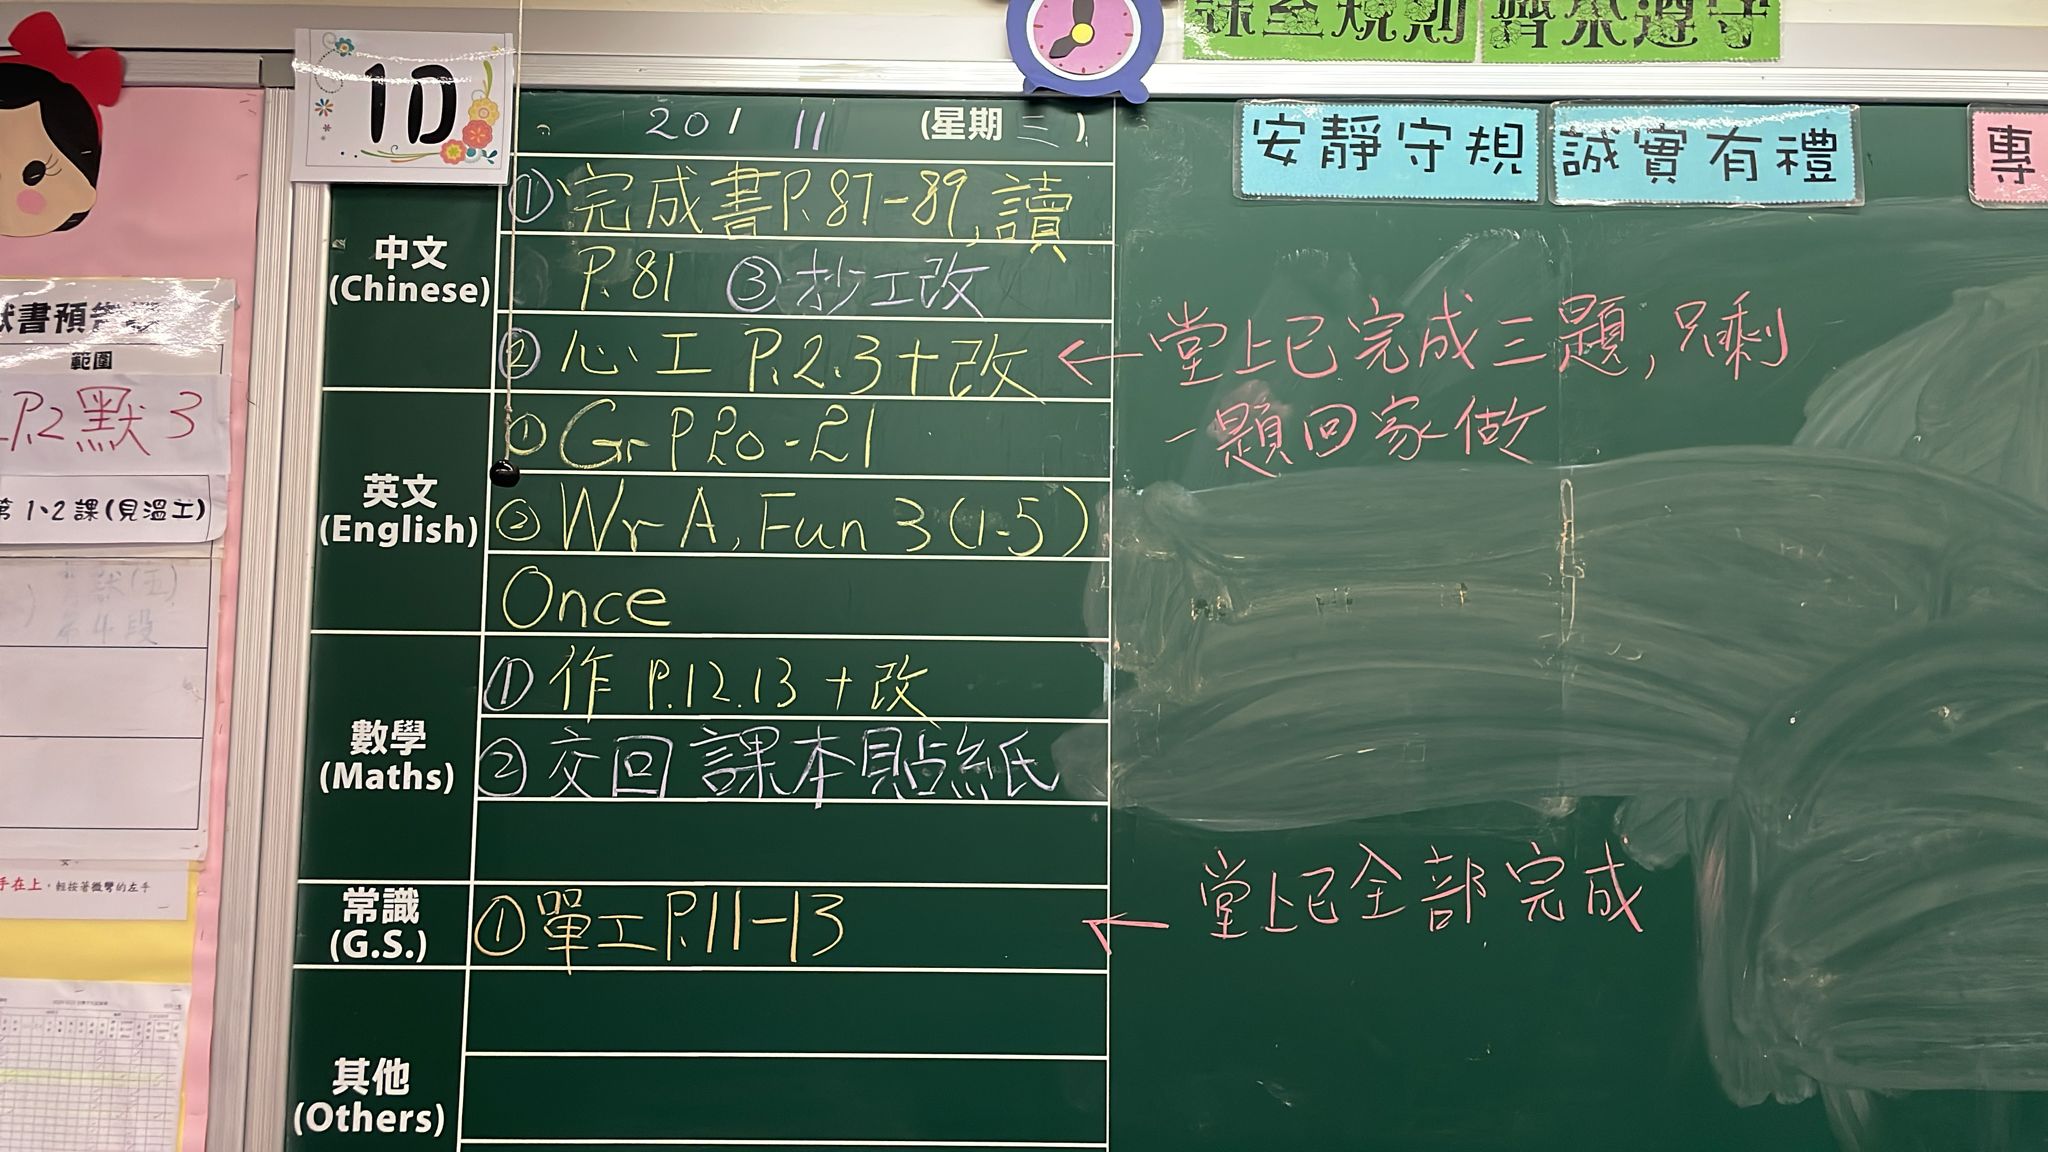 課室規則 齊來遵守
1D
20 / 11 (星期三)
安靜守規 誠實有禮 專
中文
(Chinese)
① 完成書P.87-89, 讀
P.81 ③ 抄工改
② 心工 P.2.3+改 ← 堂上已完成三題, 只剩
一題回家做
英文
(English)
① Gr P20-21
② Wr A, Fun 3 (1-5)
Once
數學
(Maths)
① 作 P.12.13 + 改
② 交回 課本貼紙
常識
(G.S.)
① 單工 P.11-13 ← 堂上已全部完成
其他
(Others)
範圍
P.2 默 3
1、2課(見溫工)
第4段
手在上，輕按著微彎的左手